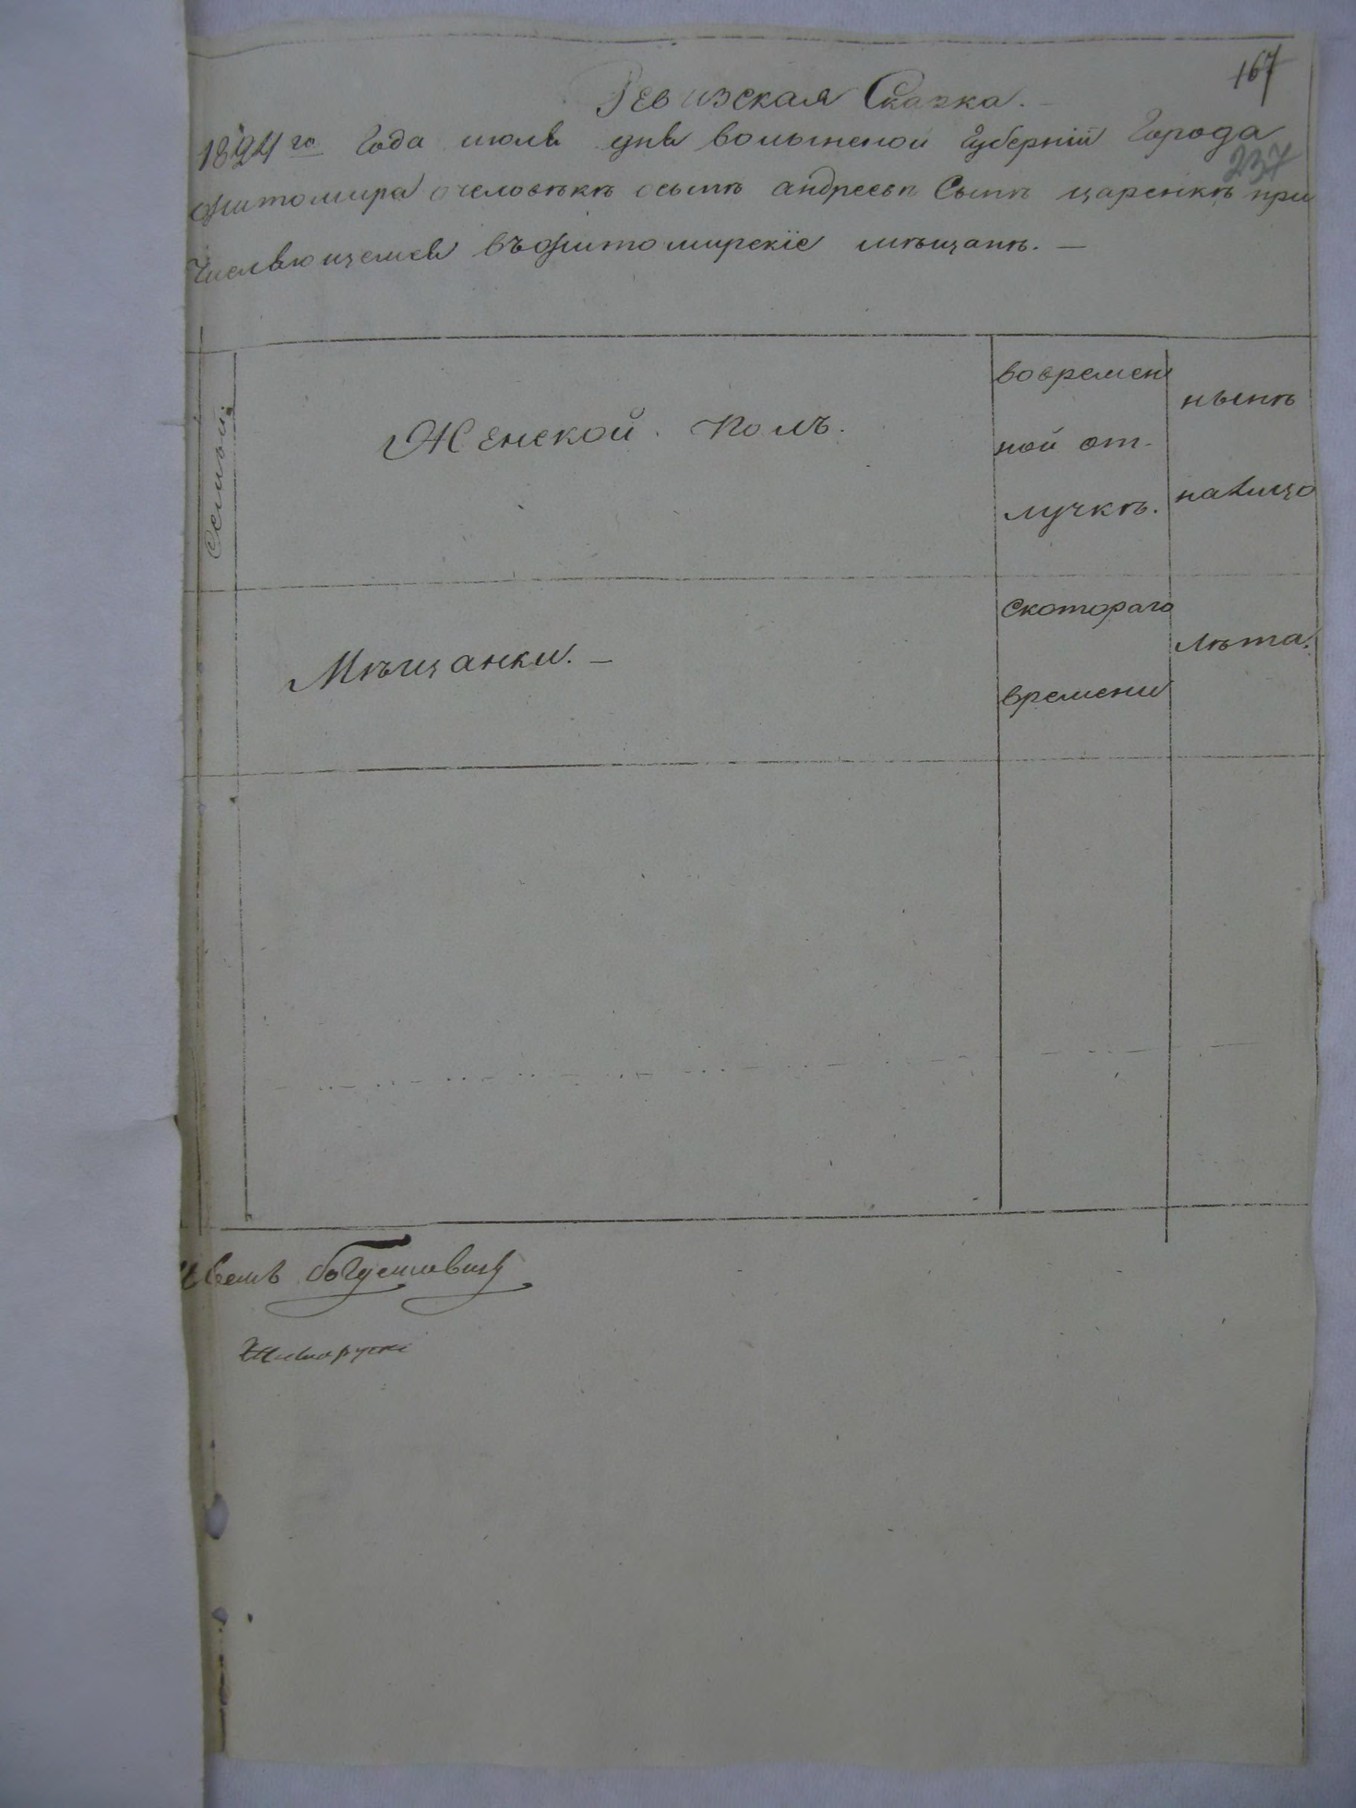 167
Ревизская Сказка. —
1824 го Года июля дня волынской Губерніи Города
237
житомира очеловѣкѣ осыпѣ андреевѣ Сынѣ царенкѣ при
Числяющемся въжитомирскіе мѣщанѣ. —
Семьи.
Женской. Полъ.
вовремен
ной от-
лучкѣ.
нынѣ
налицо
Мѣщанки. —
Скотораго
времени
лѣта.